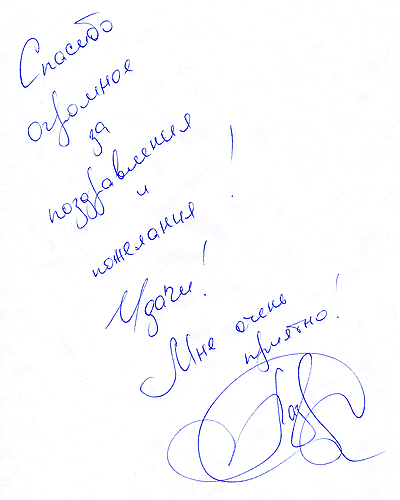 Спасибо
огромное
за
поздравления
и
пожелания!
Удачи!
Мне очень
приятно!